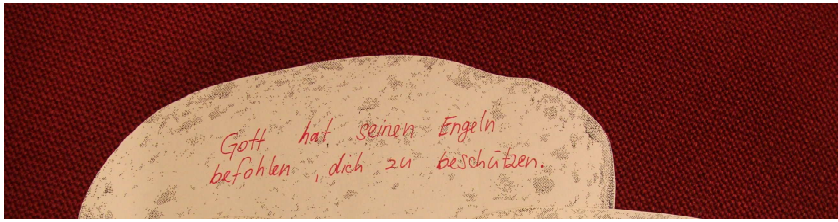 Gott hat seinen Engeln
befohlen, dich zu beschützen.